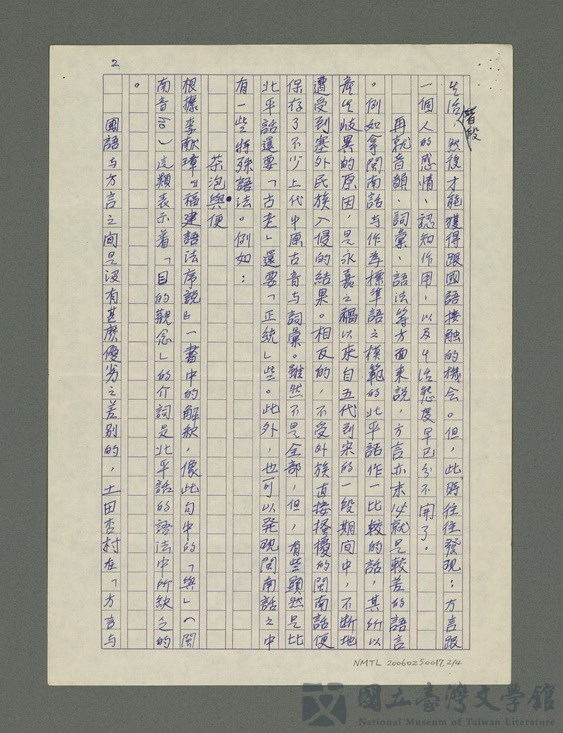 2
生活,然後才能獲得跟國語接触的機会。但,此時往往發現:方言跟
階段
一個人的感情、認知作用,以及生活態度早已分不開了。
再就音韻、詞彙、語法等方面來說,方言亦未必就是較差的語言
。例如拿閩南話与作為標準語之模範的北平話作一比較的話,其所以
產生歧異的原因,是永嘉之禍以來自五代到宋的一段期间中,不斷地
遭受到塞外民族入侵的結果。相反的,不受外族直接搔擾的閩南話便
保存了不少上代中原古音与詞彙。雖然不是全部,但,有些顯然是比
北平話還要「古老」還要「正統」些。此外,也可以発現閩南話之中
有一些特殊語法。例如:
茶泡與便
根據李献璋『福建語法序說』一書中的解釈,像此句中的「與」(閩
南音 hō)這類表示着「目的觀念」的介詞是北平話的語法中所缺乏的
。
國語与方言之间是沒有甚麼優劣之差別的,土田杏村在「方言与
NMTL 20060250017. 2/4
國立臺灣文學館
National Museum of Taiwan Literature